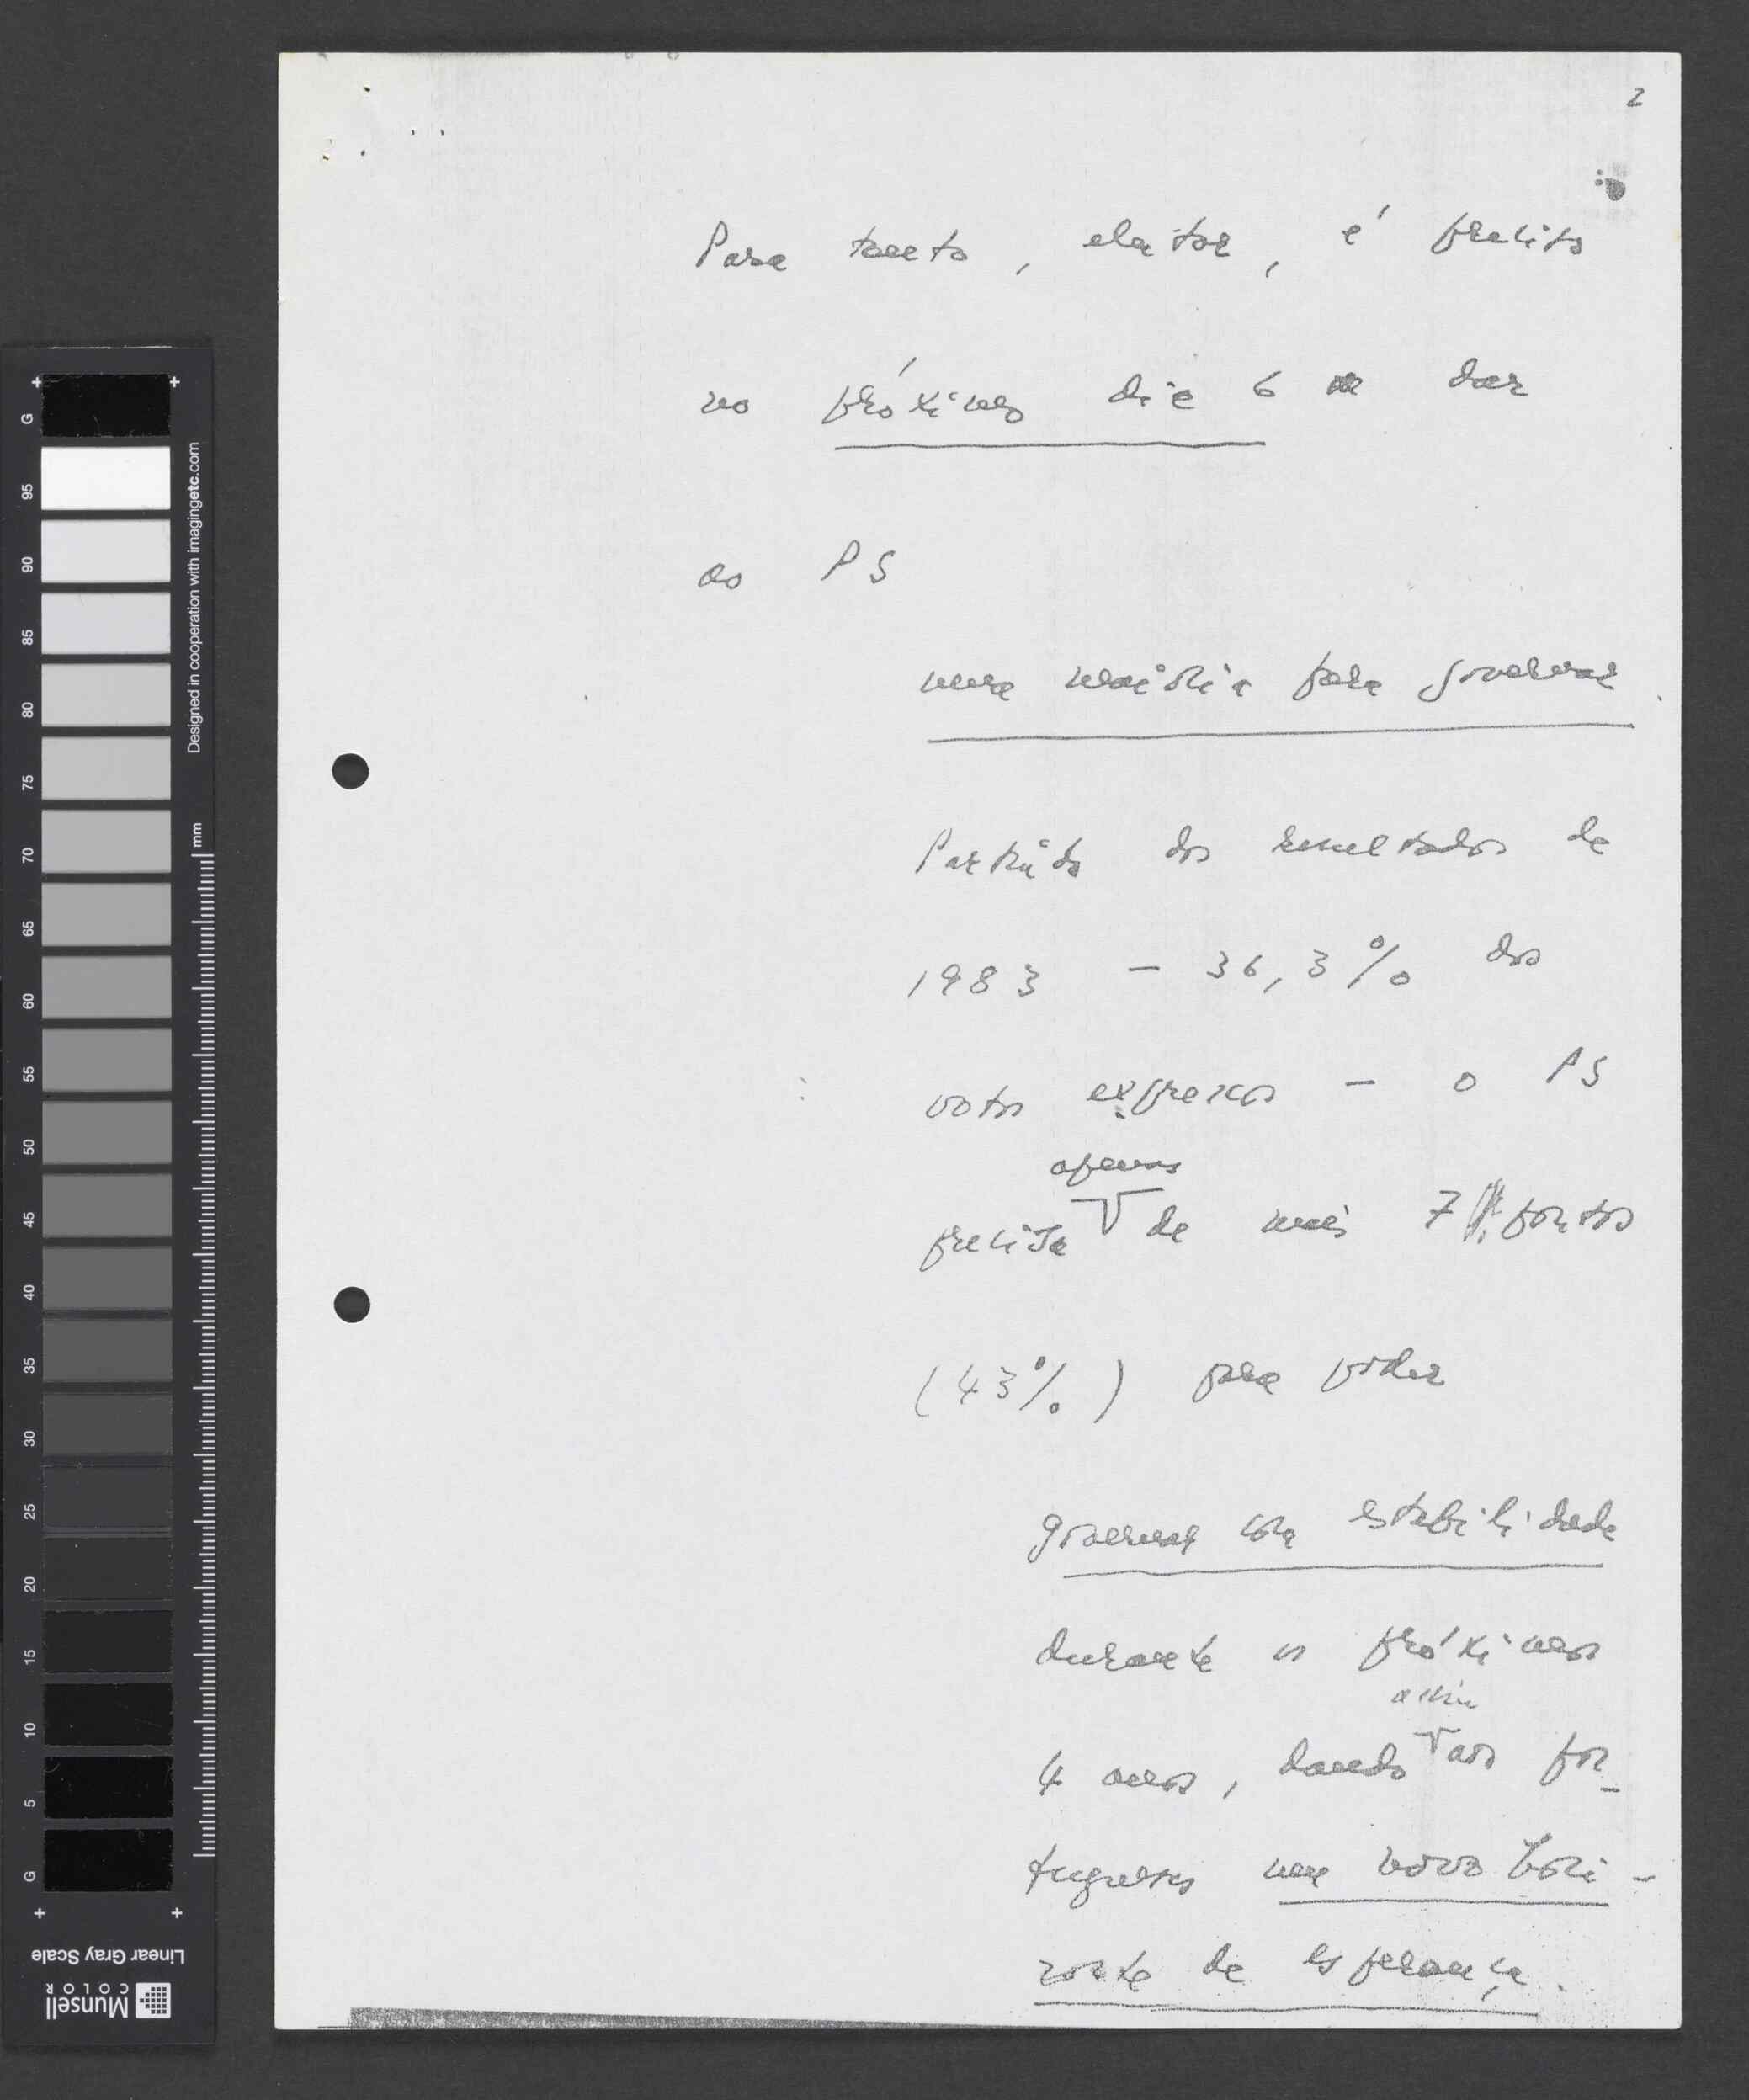 2
Para tanto, eleitor, é preciso
no próximo dia 6 dar
ao PS
uma maioria para governar.
Partindo dos resultados de
1983 - 36,3% dos
votos expressos - o PS
apenas
precisa de mais 7 pontos
(43%) para poder
governar com estabilidade
durante os próximos
assim
4 anos, dando aos por-
tugueses um novo hori-
zonte de esperança.
G
95
90
85
80
75
70
65
60
55
50
45
40
35
30
25
20
15
10
5
G
Designed in cooperation with imagingetc.com
mm
Linear Gray Scale
Munsell
COLOR